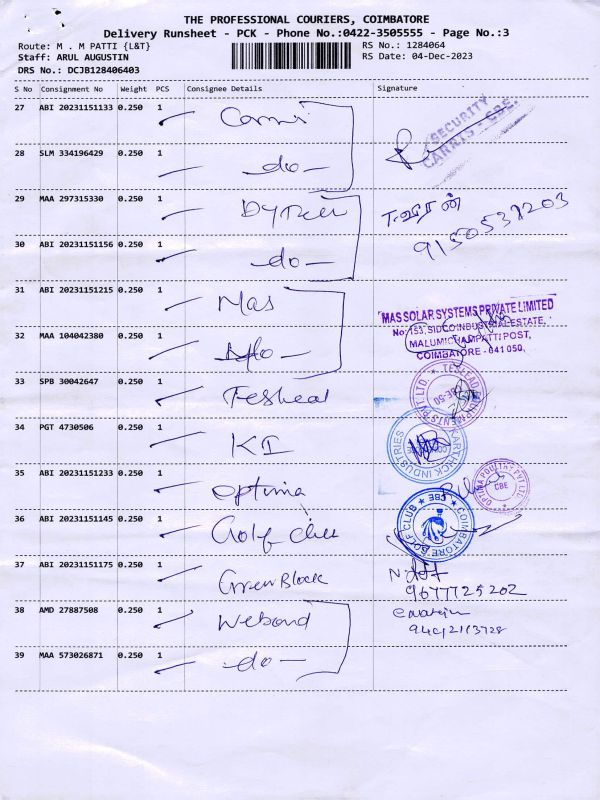 THE PROFESSIONAL COURIERS, COIMBATORE
Delivery Runsheet - PCK - Phone No.:0422-3505555 - Page No.:3
Route: M . M PATTI {L&T} RS No.: 1284064
Staff: ARUL AUGUSTIN RS Date: 04-Dec-2023
DRS No.: DCJB128406403
S No Consignment No Weight PCS Consignee Details Signature
27 ABI 20231151133 0.250 1
SECURITY
CARRIS - CBE.
28 SLM 334196429 0.250 1 -do-
29 MAA 297315330 0.250 1
9150537203
30 ABI 20231151156 0.250 1 -do-
31 ABI 20231151215 0.250 1 Mas
MAS SOLAR SYSTEMS PRIVATE LIMITED
No: 153, SIDCO INDUSTRIAL ESTATE,
MALUMICHAMPATTI POST,
COIMBATORE - 641 050.
32 MAA 104042380 0.250 1 do-
33 SPB 30042647 0.250 1
34 PGT 4730506 0.250 1 KI
KARTHICK INDUSTRIES
35 ABI 20231151233 0.250 1 optima
OPTIMA POULTRY PVT LTD
CBE
36 ABI 20231151145 0.250 1 Golf club
COIMBATORE GOLF CLUB
CBE
37 ABI 20231151175 0.250 1 Green Block
9677725202
38 AMD 27887508 0.250 1 Webond
39 MAA 573026871 0.250 1 -do-